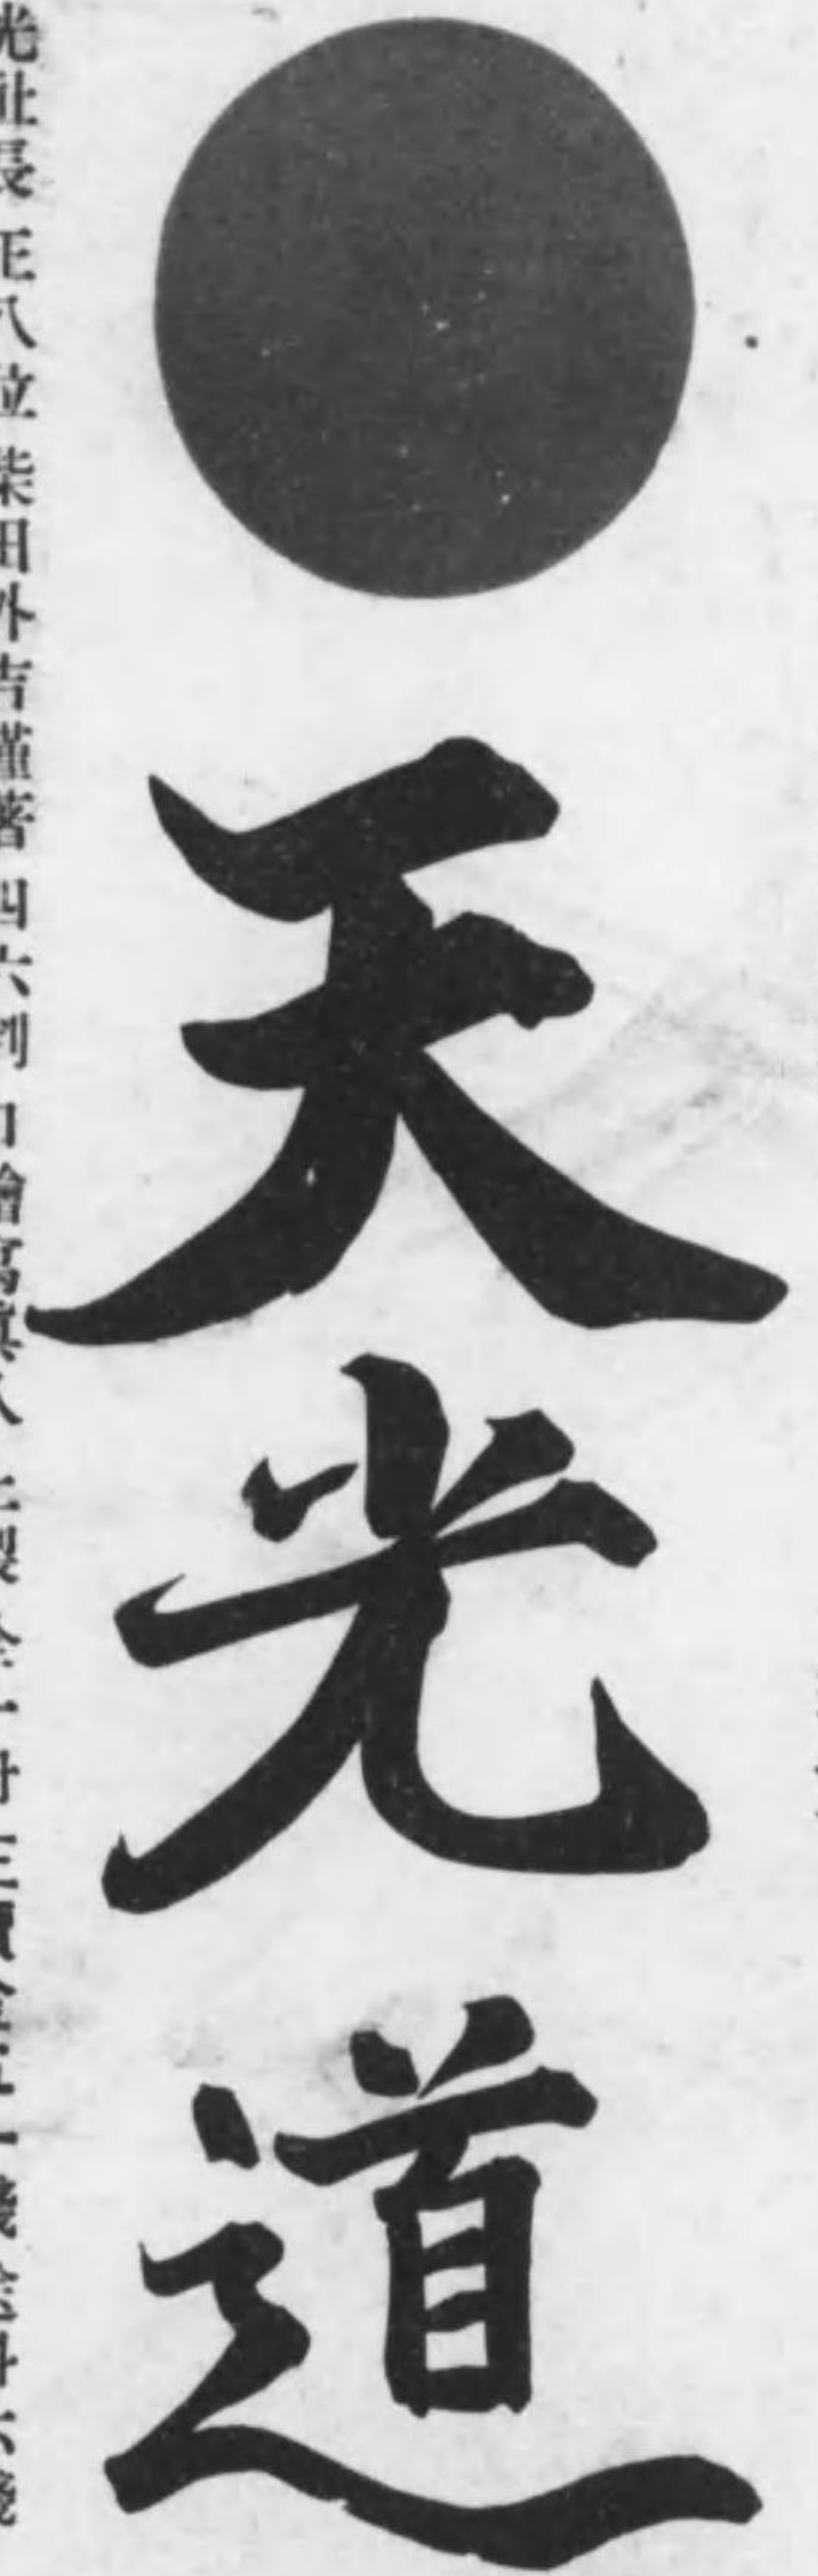 天光道
光社長 正八位 柴田外吉謹著 四六判 口繪寫眞入 上製金一圓